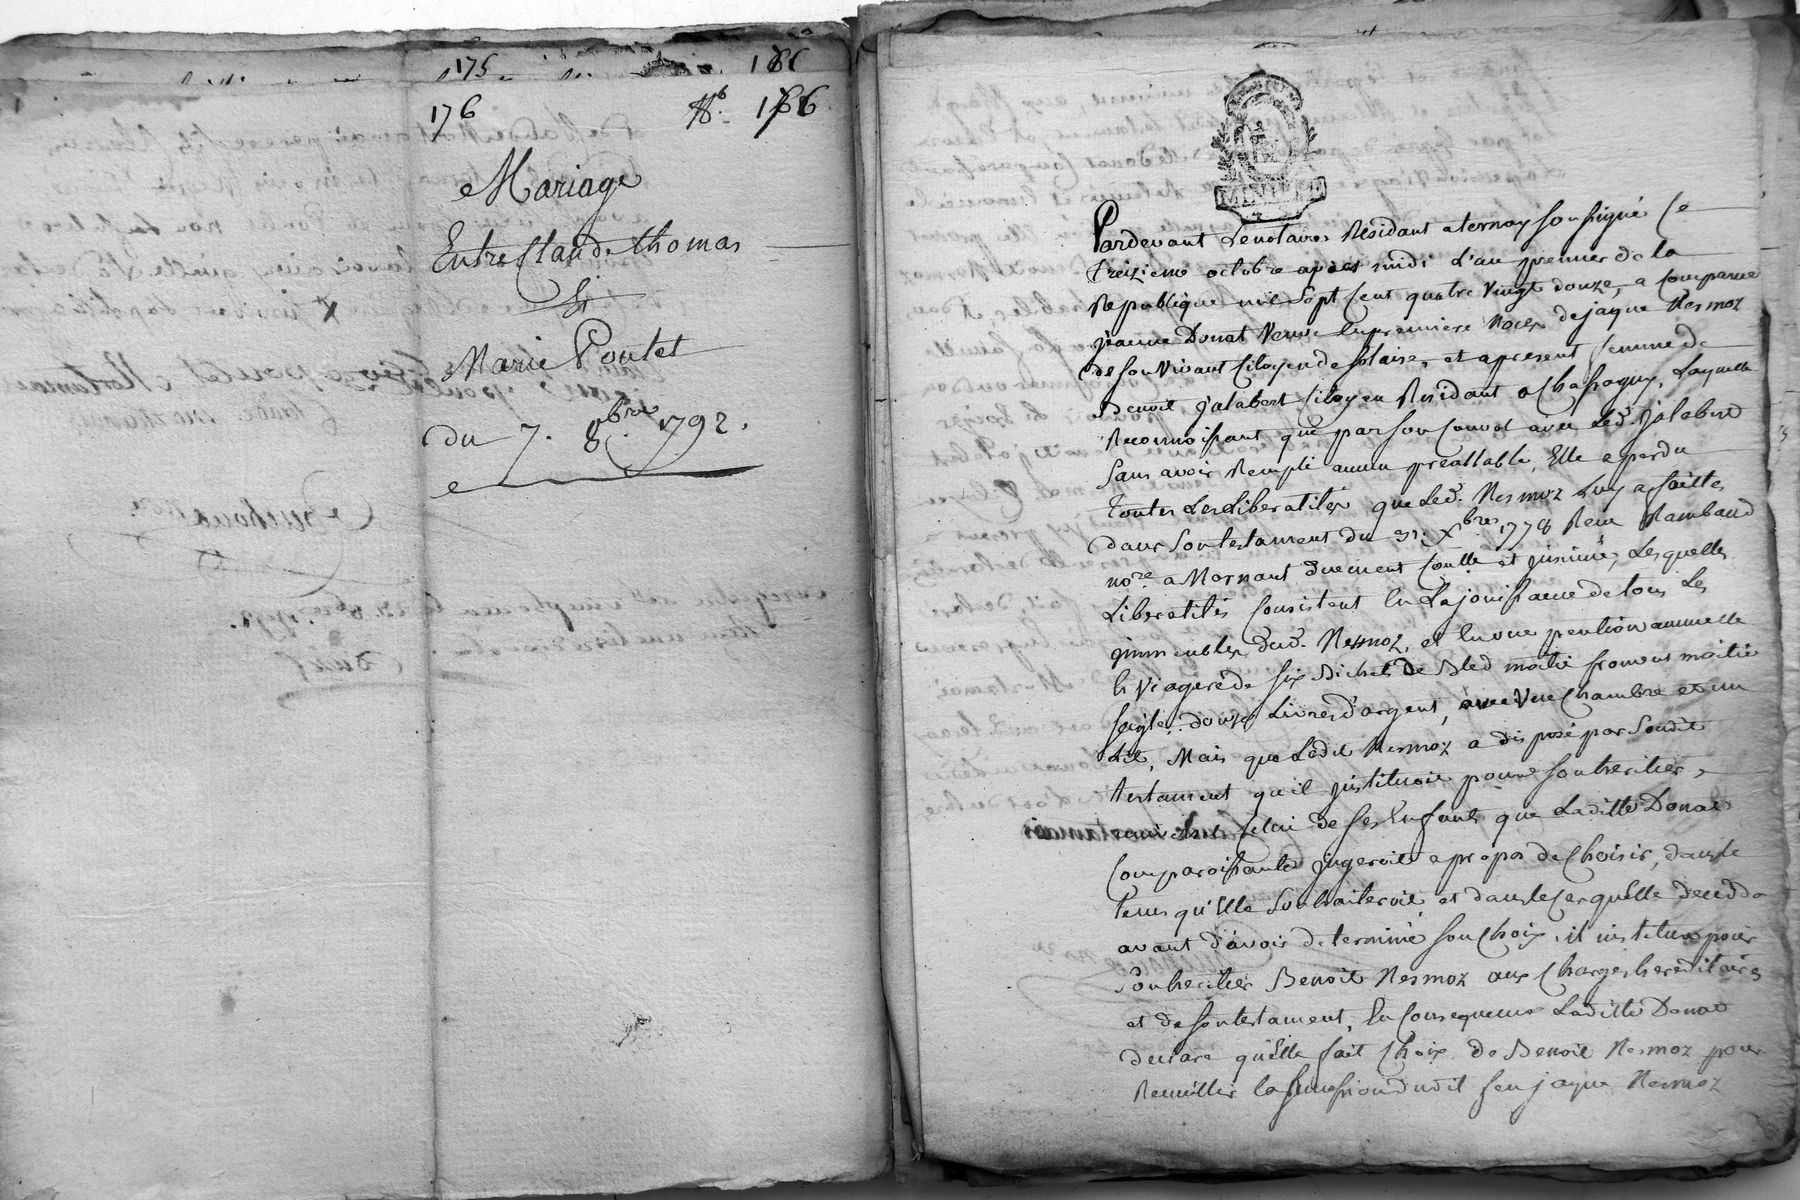 175 186
176 N.º 186
Mariage
Entre Claude thomas
Et
Marie Poulet
du 7. 8.bre 1792.
Pardevant Le notaire Residant a ternay soussigné Ce
treizieme octobre après midi L'an premier de la
Republique mil Sept Cent quatre vingt douze, a comparue
jeanne Donat veuve En premiere Noces de jaque Nesmoz
de son vivant Citoyen de Solaise, et apresent femme de
Benoit jalabert Citoyen Residant a Chassagny, Laquelle
Reconnoissant que par son Convol avec Led. jalabert
Sans avoir Rempli aucun preallable, Elle a perdu
toutes Les Liberalités que Led. Nesmoz Luy a faittes
dans Son testament du 31. Xbre 1778 Reçu Rambaud
nore a Mornant duement Conllé et jnsinué, Lesquelles
Liberalités Consistent En La jouissance de tous Les
jmmeubles dud. Nesmoz, et En une pention annuelle
Et viagere de six Bichets de Bled moitié froment moitié
seigle, douze Livres d'argent, avec une Chambre et un
Lit, Mais que Ledit Nesmoz a disposé par Sondit
testament qu'il jnstituoit pour son heritier,
Celui de ses Enfants que Laditte Donat
Comparoissante jugeroit a propos de Choisir, dans le
tems qu'Elle Souhaiteroit et dans le Cas qu'Elle deceda
avant d'avoir determiné son Choix, il institue pour
Son heritier Benoit Nesmoz aux Charges hereditaires
et de son testament, En Consequence Laditte Donat
declare qu'Elle fait Choix de Benoit Nesmoz pour
Recueillir la Succession dudit feu jaque Nesmoz